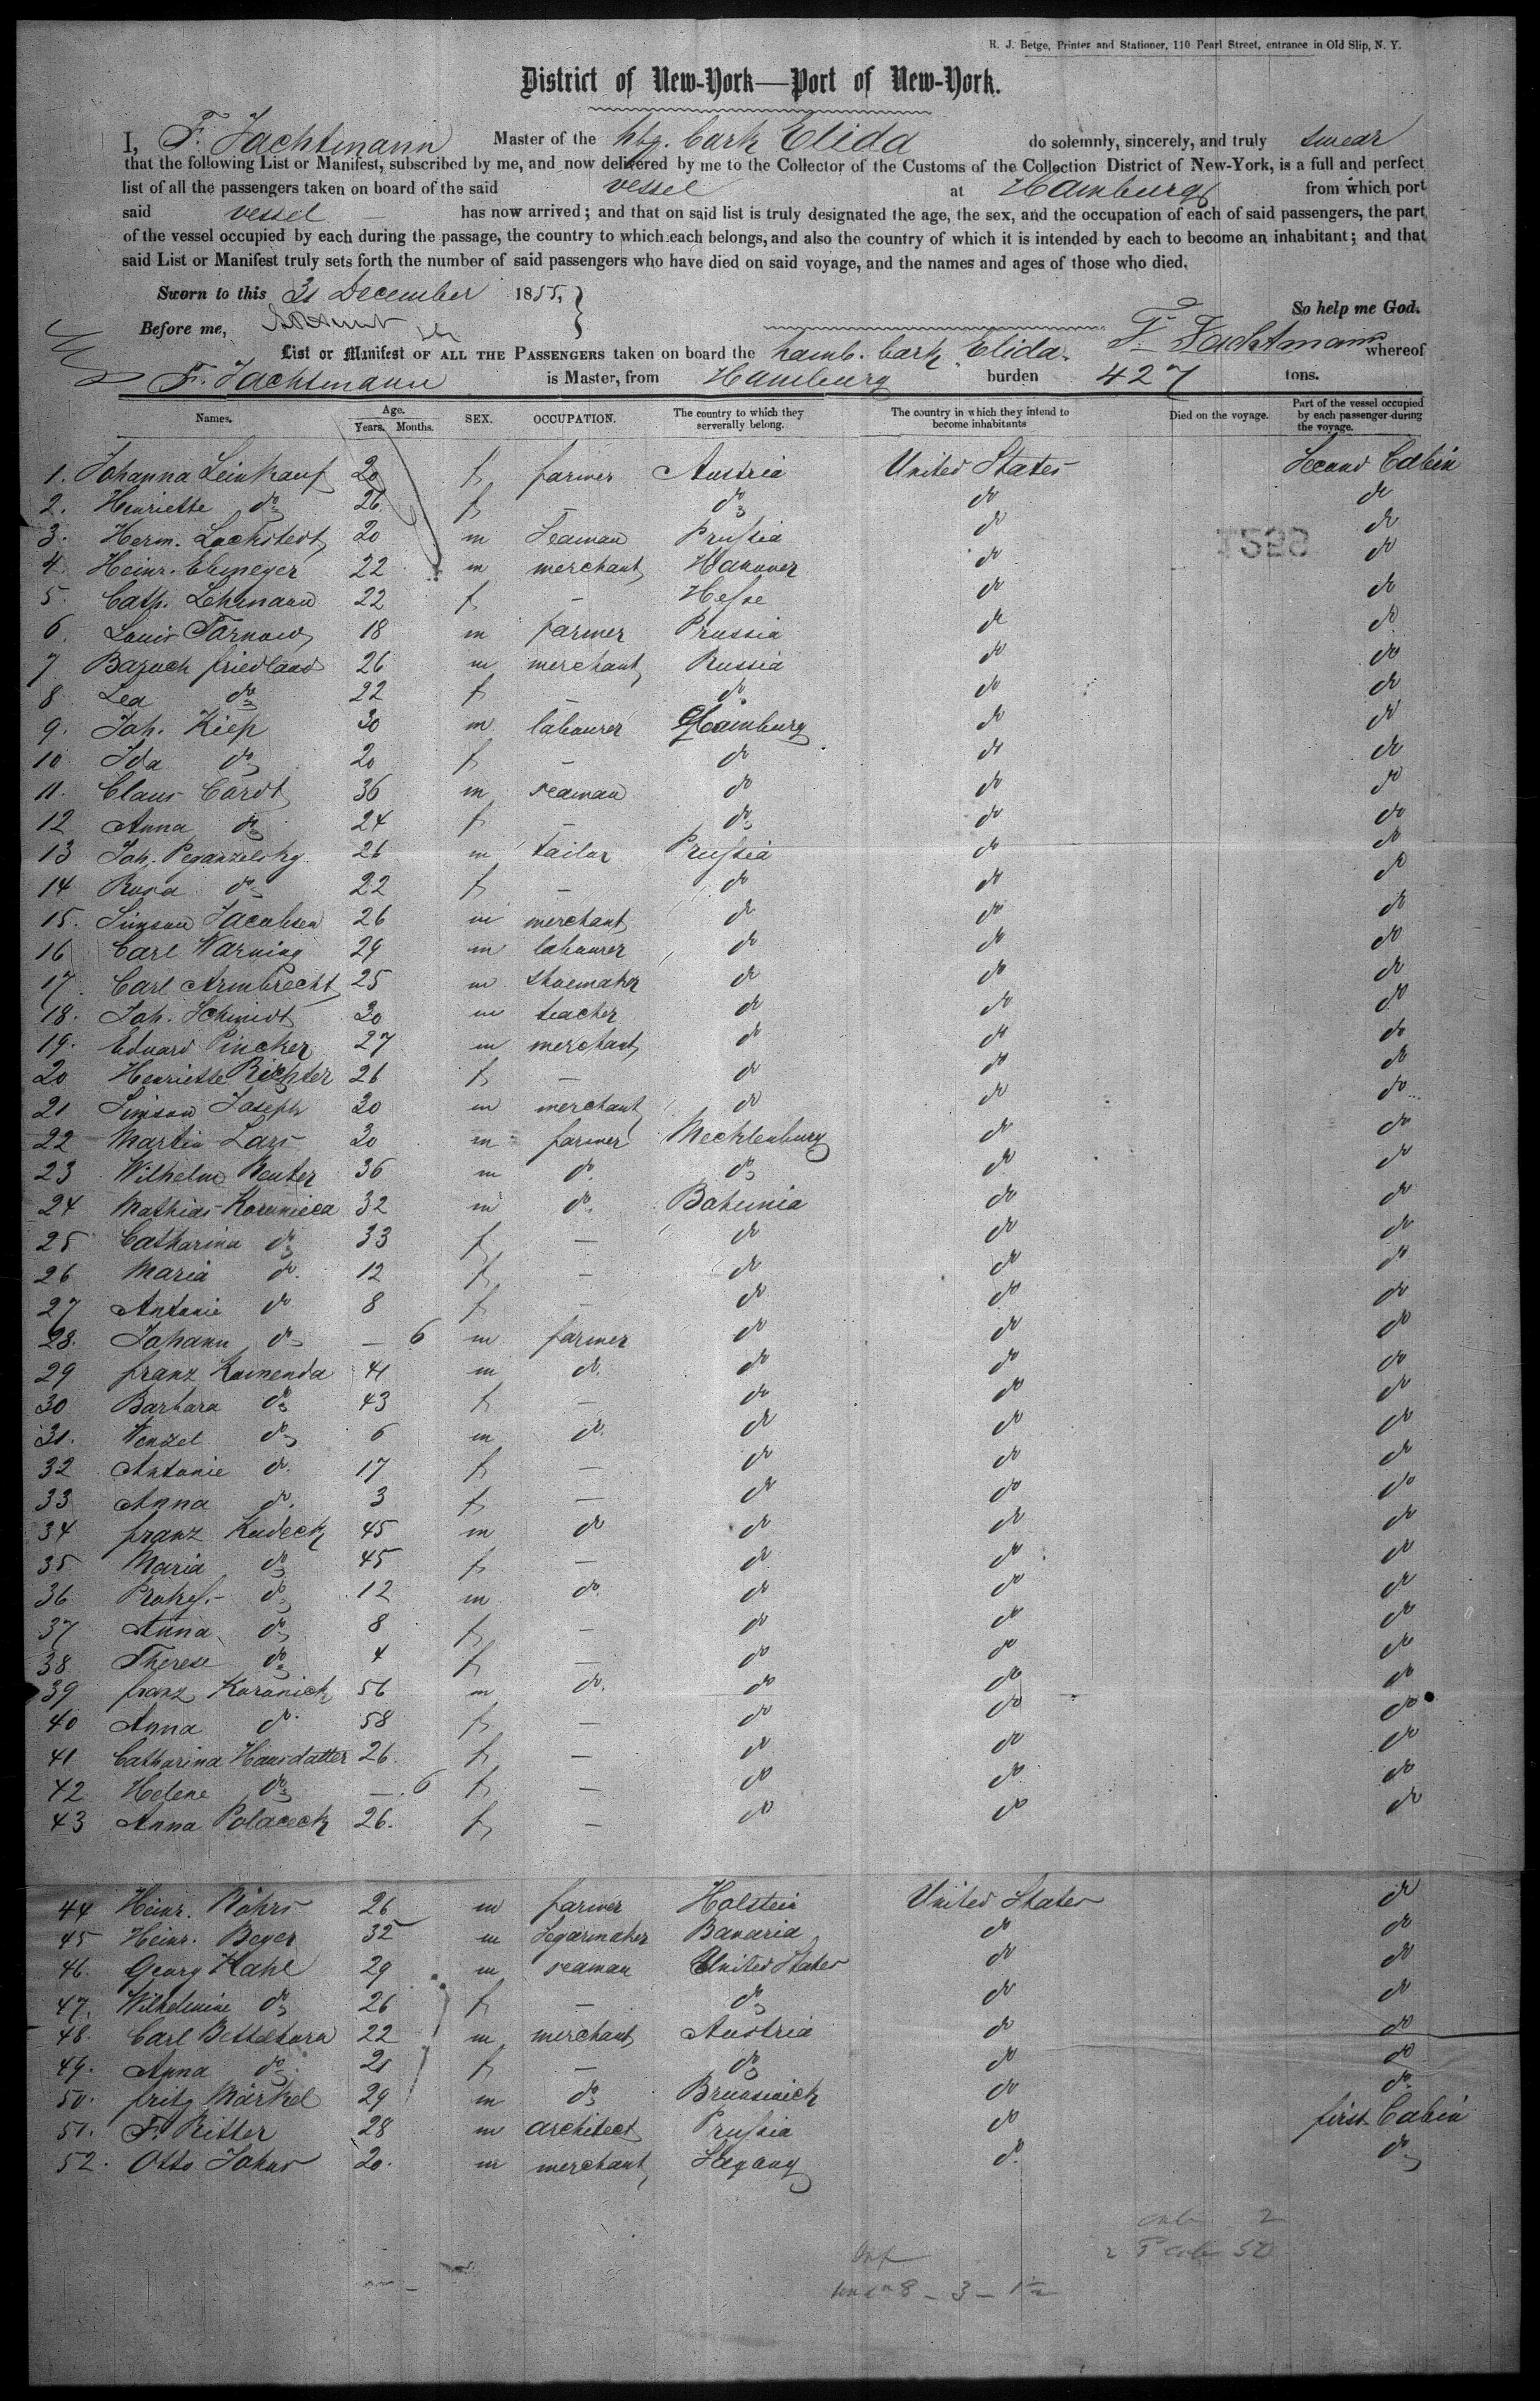 R. J. Betge, Printer and Stationer, 110 Pearl Street, entrance in Old Slip, N. Y.
District of New-York—Port of New-York.
I, F. Jachtmann Master of the hbg. bark Elida do solemnly, sincerely, and truly swear
that the following List or Manifest, subscribed by me, and now delivered by me to the Collector of the Customs of the Collection District of New-York, is a full and perfect
list of all the passengers taken on board of the said vessel at Hamburg from which port
said vessel has now arrived; and that on said list is truly designated the age, the sex, and the occupation of each of said passengers, the part
of the vessel occupied by each during the passage, the country to which each belongs, and also the country of which it is intended by each to become an inhabitant; and that
said List or Manifest truly sets forth the number of said passengers who have died on said voyage, and the names and ages of those who died.
Sworn to this 31 December 1855,
So help me God.
Before me, F. Jachtmann
List or Manifest OF ALL THE PASSENGERS taken on board the hamb. bark Elida whereof
F. Jachtmann is Master, from Hamburg burden 427 tons.
Names. Age. Years. Months. SEX. OCCUPATION. The country to which they serverally belong. The country in which they intend to become inhabitants Died on the voyage. Part of the vessel occupied by each passenger during the voyage.
1. Johanna Leinkauf 20 f farmer Austria United States Second Cabin
2. Henriette do 26 f — do do do
3. Herm. Lochstedt 20 m Seaman Prussia do do
4. Heinr. Ebmeyer 22 m merchant Hanover do do
5. Cath. Lehmann 22 f — Hesse do do
6. Louis Tarnow 18 m farmer Prussia do do
7 Baruch Friedland 26 m merchant Russia do do
8 Lea do 22 f — do do do
9. Joh. Kiep 30 m labourer Hamburg do do
10 Ida do 20 f — do do do
11. Claus Cordt 36 m seaman do do do
12 Anna do 24 f — do do do
13 Joh. Peganzelsky 26 m tailor Prussia do do
14 Rosa do 22 f — do do do
15. Simson Jacobsen 26 m merchant do do do
16 Carl Warning 29 m labourer do do do
17 Carl Armbrecht 25 m shoemaker do do do
18. Joh. Schmidt 30 m teacher do do do
19. Eduard Pincker 27 m merchant do do do
20 Henriette Richter 26 f — do do do
21 Simson Joseph 30 m merchant do do do
22 Martin Lass 30 m farmer Mecklenburg do do
23 Wilhelm Reuter 36 m do. do do do
24 Mathias Korunicca 32 m do. Bohemia do do
25 Catharina do 33 f — do do do
26 Maria do. 12 f — do do do
27 Antonie do 8 f — do do do
28. Johann do — 6 m farmer do do do
29 Franz Komenda 41 m do. do do do
30 Barbara do 43 f — do do do
31. Wenzel do 6 m do. do do do
32 Antonie do. 17 f — do do do
33 Anna do. 3 f — do do do
34 Franz Kudeck 45 m do do do do
35 Maria do 45 f — do do do
36 Prokof.- do 12 m do. do do do
37 Anna do 8 f — do do do
38 Therese do 4 f — do do do
39 Franz Koranick 56 m do. do do do
40 Anna do. 58 f — do do do
41 Catharina Hansdatter 26. f — do do do
42 Helene do —. 6 f — do do do
43 Anna Polaceck 26. f — do do do
44 Heinr. Röhrs 26 m farmer Holstein United States do
45 Heinr. Beyer 32 m Segarmaker Bavaria do do
46. Georg Hahl 29 m seaman United States do do
47. Wilhelmine do 26 f — do do do
48. Carl Bettelhorn 22 m merchant Austria do do
49. Anna do 21 f — do do do
50. Fritz Märkel 29 m do Brunswick do do
51. F. Ritter 28 m architect Prussia do first Cabin
52. Otto Johns 20. m merchant do. do